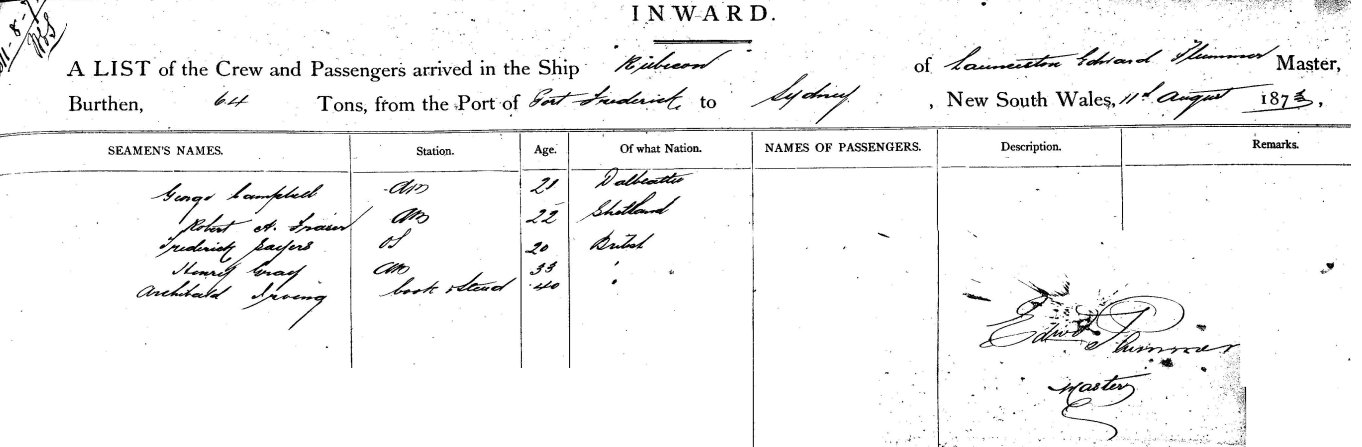 INWARD.
11-8-7
A LIST of the Crew and Passengers arrived in the Ship "Rubicon" of Launceston Edward Plummer Master,
Burthen, 64 Tons, from the Port of Port Frederick to Sydney, New South Wales, 11th August 1873,
SEAMEN'S NAMES. Station. Age. Of what Nation. NAMES OF PASSENGERS. Description. Remarks.
George Campbell AB 21 Dalbeattie
Robert A. Fraser AB 22 Shetland
Frederick Sayers OS 20 British
Henry Gray AB 33 "
Archibald Irving Cook & Steud 40 "
Edwd Plummer
Master